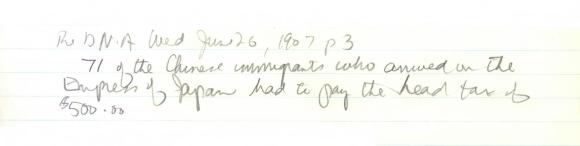 The D.N.A Wed June 26, 1907 p 3
71 of the Chinese immigrants who arrived on the
Empress of Japan had to pay the head tax of
$500.00